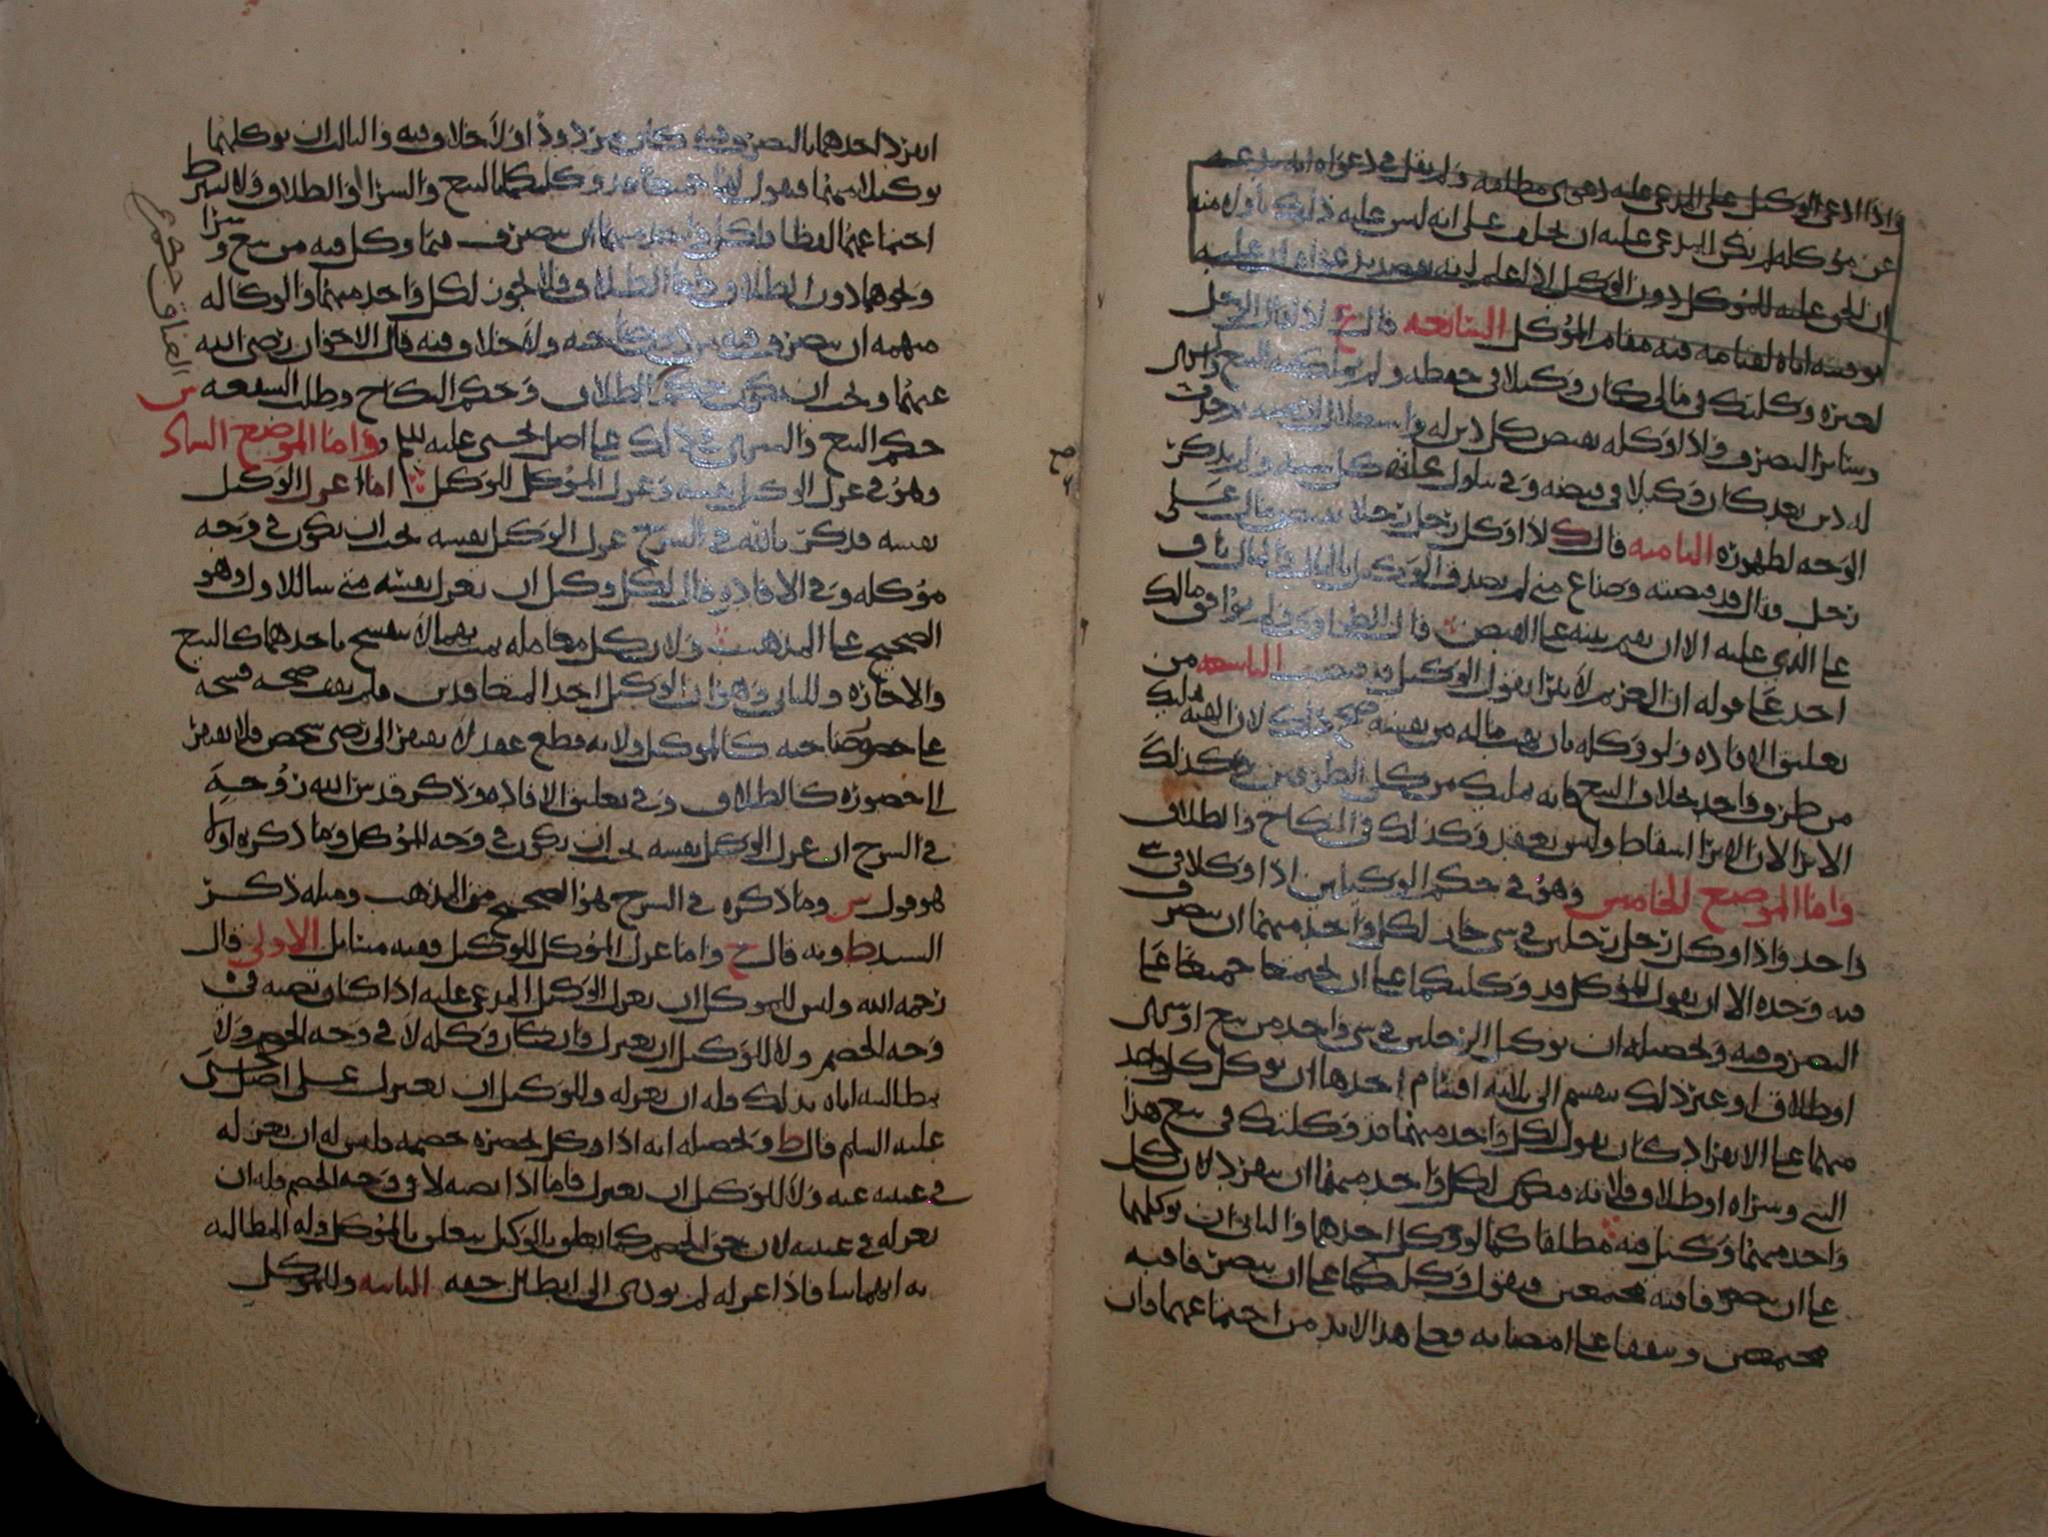 واذا ادعى الوكيل على المدعى عليه دعوى مطلقه ولم يقل في دعواه انه يدعيه
عن موكله لم يكن للمدعى عليه ان يحلف على انه ليس عليه ذلك بل وله منه
ان الحق عليه للموكل دون الوكيل اذا علم
اياه لقيامه فيه مقام الموكل السابعه قال ع لا لو قال الرجل
لغيره وكلتك في مالي كان وكيلا في حفظه ولم يملك فيه البيع والشرى
وسائر التصرف فاذا وكله بقبض كل دين له
له دين بعد كان وكيلا في قبضه وفي تناول ولم يذكر
الوجه لظهوره الثامنه قال ك لو اوكل رجل رجلا بقبض مال على
رجل فقال قد قبضته وضاع مني لم يصدق الوكيل والمال باق
على الذي عليه الا ان يقيم بينه على القبض قال الطحاوي ولم يوافق مالك
احد على قوله ان الغريم لا يبرا بقول الوكيل قد قبضت التاسعه من
تعليق الافاده ولو وكله بان يهب ماله من نفسه صح ذلك لان الهبه تمليك
من طرف واحد بخلاف البيع فانه تمليك من كل الطرفين وكذلك
الابرا لان الابرا اسقاط وليس بعقد وكذلك في النكاح والطلاق
واما الموضع الخامس وهو في حكم الوكيلين اذا وكلا في شي
واحد واذا وكل رجل رجلين في شي جاز لكل واحد منهما ان يتصرف
فيه وحده الا ان يقول الموكل قد وكلتكما على ان تجتمعا جميعا على
التصرف فيه وتحصيله ان توكيل الرجلين في شي واحد من بيع او شرى
او طلاق او غير ذلك ينقسم الى ثلاثه اقسام احدها ان يوكل كل واحد
منهما على الانفراد كان يقول لكل واحد منهما قد وكلتك في بيع هذا
الشي وشراه او طلاق فلانه فيكون لكل واحد منهما ان ينفرد لان كل
واحد منهما وكيل فيه مطلقا كما لو وكل احدهما والثاني ان يوكلهما
على ان يتصرفا فيه مجتمعين فيقول وكلتكما على ان تتصرفا فيه
مجتمعين وتتفقا على امضايه فعلى هذا لا بد من اجتماعهما فان
انفرد احدهما بالتصرف فيه كان مردودا ولا خلاف فيه والثالث ان يوكلهما
توكيلا مبهما فيقول لهما جميعا قد وكلتكما بالبيع والشرا او الطلاق ولا يشرط
اجتماعهما لفظا فلكل واحد منهما ان يتصرف فيما وكل فيه من بيع وشرا
ونحوهما دون الطلاق فاما الطلاق فلا يجوز لكل واحد منهما والوكاله
مبهمه ان يتصرف فيه من دون صاحبه ولا خلاف فيه قال الاخوان رضي الله
عنهما ويجب ان يكون حكم الطلاق وحكم النكاح وطلب الشفعه
حكم البيع والشرى في ذلك على اصل يحيى عليه السلم واما الموضع السادس
وهو في عزل الوكيل نفسه وعزل الموكل للوكيل اما عزل الوكيل
نفسه فذكر بالله في الشرح عزل الوكيل نفسه يجب ان يكون في وجه
موكله وفي الافاده قال لكل وكيل ان يعزل نفسه متى شا للاول وهو
الصحيح على المذهب ولان كل معامله بينهما لا ينفسخ باحدهما كالبيع
والاجاره وللثاني وهو ان الوكيل احد المتعاقدين فلم يقف صحه فسخه
على حضور صاحبه كالموكل ولانه قطع عقد لا يفتقر الى رضى شخص فلا يفتقر
الى حضوره كالطلاق وفي تعليق الافاده وذكر قدس الله روحه
في الشرح ان عزل الوكيل نفسه يجب ان يكون في وجه الموكل وما ذكره اولا
هو قول س وما ذكره في الشرح هو الصحيح من المذهب ومثله ذكر
السيد ط وبه قال ح واما عزل الموكل للوكيل ففيه مسائل الاولى قال
رحمه الله وليس للموكل ان يعزل الوكيل المدعى عليه اذا كان نصبه في
وجه الخصم ولا للوكيل ان يعتزل وان كان وكله لا في وجه الخصم ولا
بمطالبته اياه بذلك فله ان يعزله وللوكيل ان يعتزل على اصل يحيى
عليه السلم قال ط وتحصيله انه اذا وكل بحضره خصمه فليس له ان يعزله
في غيبته عنه ولا للوكيل ان يعتزل فاما اذا نصبه لا في وجه الخصم فله ان
يعزله في غيبته لان حق الخصم كما تعلق بالوكيل يتعلق بالموكل وله المطالبه
به ايهما شا فاذا عزله لم يودي الى ابطال حقه الثانيه وللموكل